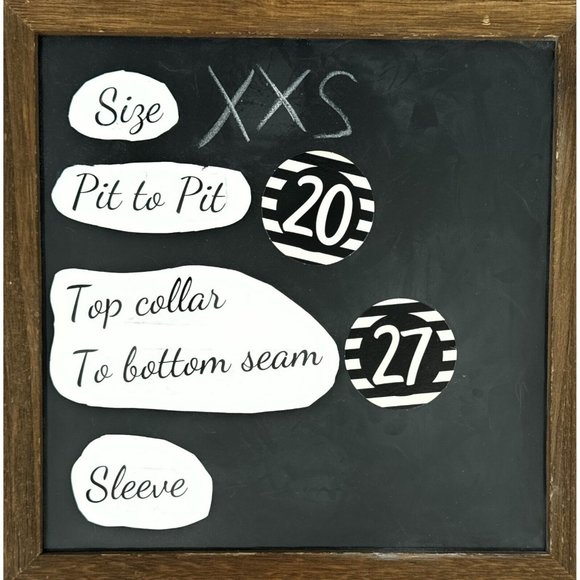 Size XXS
Pit to Pit 20
Top collar
To bottom seam 27
Sleeve